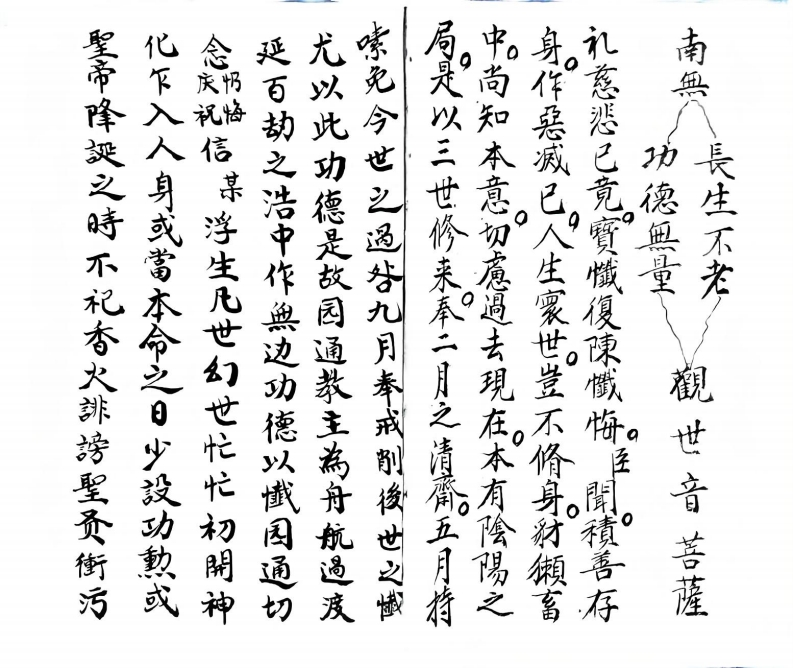 南無 長生不老 功德無量 觀世音菩薩
礼慈悲已竟。寶懺復陳懺悔。臣聞。積善存
身。作惡滅已。人生寰世。豈不脩身。豺獺畜
中。尚知本意。切慮過去現在。本有陰陽之
局。是以三世修来。奉二月之清齋。五月持
嗉免今世之過咎九月奉戒削後世之懺
尤以此功德是故园通教主為舟航過渡
延百劫之浩中作無边功德以懺园通切
念仍悔庆祝信某浮生凡世幻世忙忙初開神
化乍入人身或當本命之日少設功勲或
聖帝降誕之時不祀香火誹謗聖贡衝污